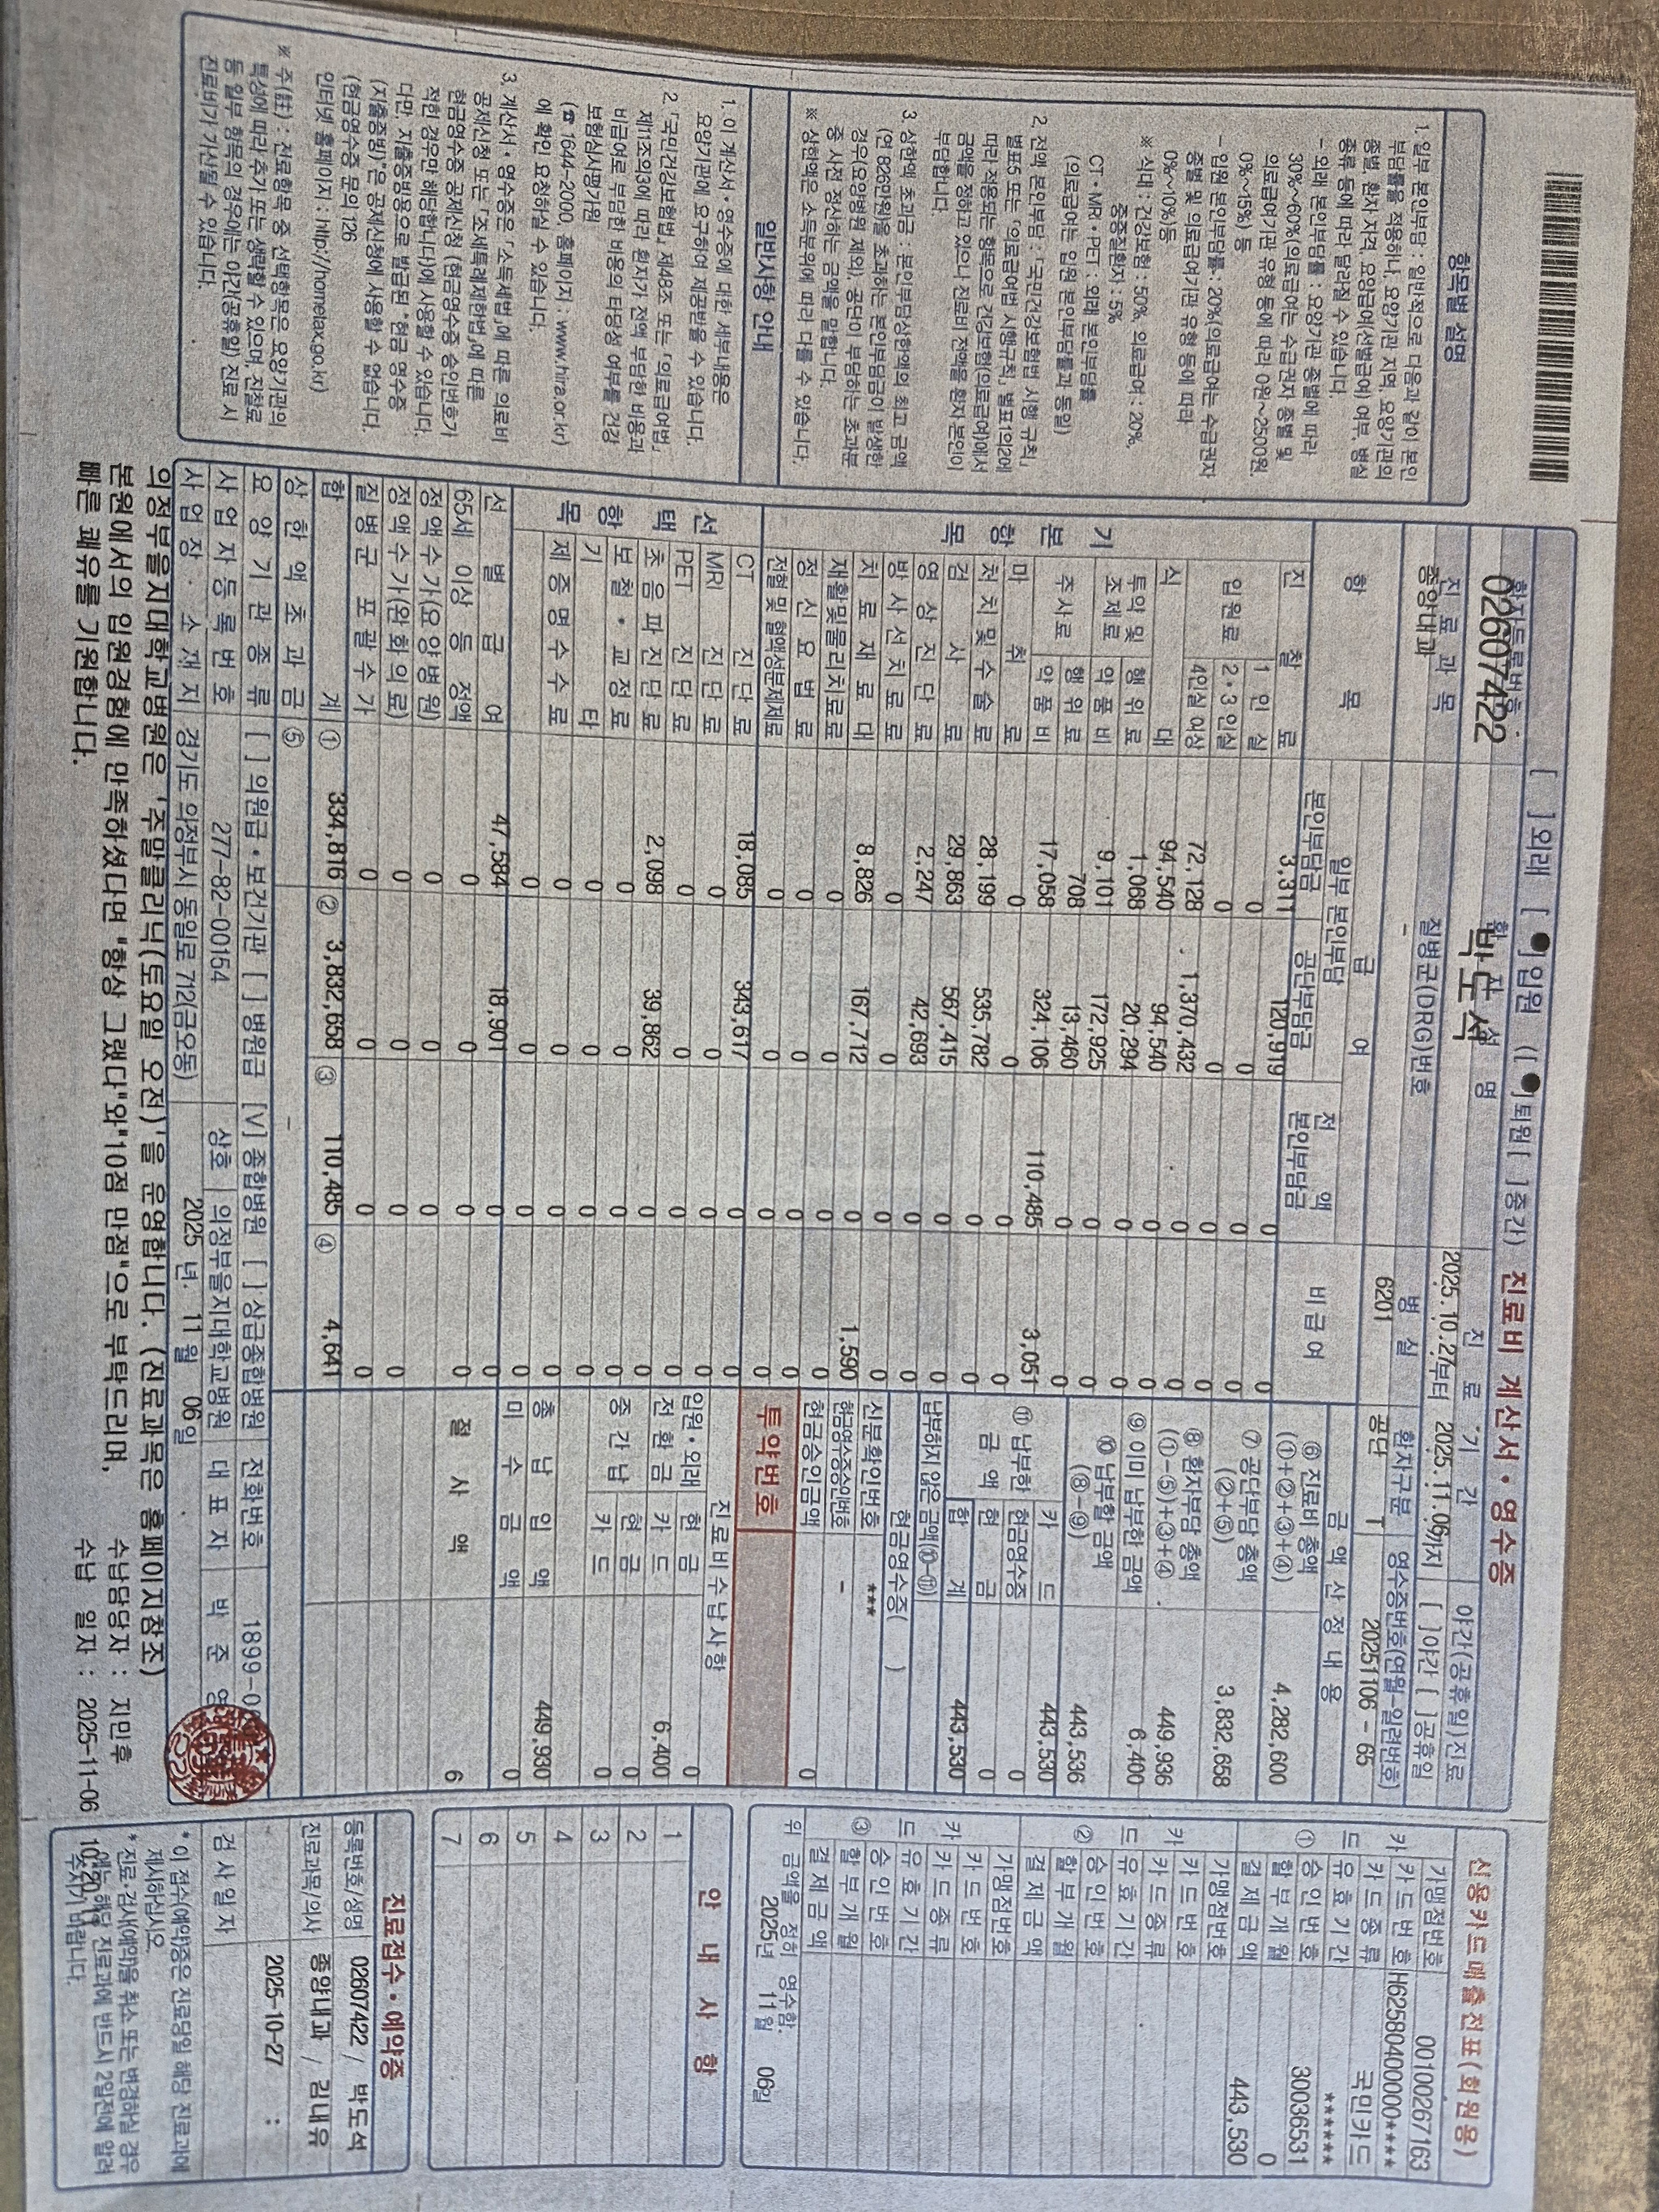 [ ]외래 [●]입원 ([●]퇴원[ ]중간) 진료비 계산서 · 영수증
환자등록번호 환 자 성 명 진 료 기 간 야간(공휴일)진료
02607422 박도석 2025.10.27부터 2025.11.06까지 [ ]야간 [ ]공휴일
진 료 과 목 질병군(DRG)번호 병 실 환자구분 영수증번호(연월-일련번호)
종양내과 - 6201 공단 20251106 - 65
항 목 급 여 비 급 여 금 액 산 정 내 용
일부 본인부담 전 액 본인부담금
본인부담금 공단부담금
기 본 항 목
진 찰 료 3,311 120,919 0 0
입원료 1 인 실 0 0 0 0
2·3 인실 0 0 0 0
4인실 이상 72,128 1,370,432 0 0
식 대 94,540 94,540 0 0
투약 및 조제료 행 위 료 1,068 20,294 0 0
약 품 비 9,101 172,925 0 0
주 사 료 행 위 료 708 13,460 0 0
약 품 비 17,058 324,106 110,485 3,051
마 취 료 0 0 0 0
처 치 및 수 술 료 28,199 535,782 0 0
검 사 료 29,863 567,415 0 0
영 상 진 단 료 2,247 42,693 0 0
방 사 선 치 료 료 0 0 0 0
치 료 재 료 대 8,826 167,712 0 1,590
재활및물리치료료 0 0 0 0
정 신 요 법 료 0 0 0 0
전혈 및 혈액성분제제료 0 0 0 0
선 택 항 목
CT 진 단 료 18,085 343,617 0 0
MRI 진 단 료 0 0 0 0
PET 진 단 료 0 0 0 0
초 음 파 진 단 료 2,098 39,862 0 0
보 철 · 교 정 료 0 0 0 0
기 타 0 0 0 0
제 증 명 수 수 료 0 0 0 0
선 별 급 여 47,584 18,901 0 0
65세 이상 등 정액 0 0 0 0
정액수가(요양병원) 0 0
정액수가(완화의료) 0 0 0 0
질 병 군 포 괄 수 가 0 0 0 0
합 계 ① 334,816 ② 3,832,658 ③ 110,485 ④ 4,641
상 한 액 초 과 금 ⑤ -
⑥ 진료비 총액 (①+②+③+④) 4,282,600
⑦ 공단부담 총액 (②+⑤) 3,832,658
⑧ 환자부담 총액 (①-⑤)+③+④ 449,936
⑨ 이미 납부한 금액 6,400
⑩ 납부할 금액 (⑧-⑨) 443,536
⑪ 납부한 금 액 카 드 443,530
현금영수증 0
현 금 0
합 계 443,530
납부하지 않은 금액(⑩-⑪)
현금영수증( )
신분확인번호 ***
현금영수증승인번호 -
현금승인금액 0
투약번호
진료비수납사항
입원·외래 전 환 금 현 금 0
카 드 6,400
중 간 납 현 금 0
카 드 0
총 납 입 액 449,930
미 수 금 액 0
절 사 액 6
요 양 기 관 종 류 [ ] 의원급·보건기관 [ ] 병원급 [V] 종합병원 [ ] 상급종합병원 전화번호
사 업 자 등 록 번 호 277-82-00154 상호 의정부을지대학교병원 대 표 자 박 준 영
사 업 장 · 소 재 지 경기도 의정부시 동일로 712(금오동) 2025 년 11 월 06 일
의정부을지대학교병원은 '주말클리닉(토요일 오전)'을 운영합니다. (진료과목은 홈페이지참조)
본원에서의 입원경험에 만족하셨다면 "항상 그랬다"와"10점 만점"으로 부탁드리며, 수납담당자 : 지민후
빠른 쾌유를 기원합니다. 수납 일자 : 2025-11-06
항목별 설명
1. 일부 본인부담 : 일반적으로 다음과 같이 본인
부담률을 적용하나, 요양기관 지역, 요양기관의
종별, 환자 자격, 요양급여(선별급여) 여부, 병실
종류 등에 따라 달라질 수 있습니다.
- 외래 본인부담률 : 요양기관 종별에 따라
30%~60%(의료급여는 수급권자 종별 및
의료급여기관 유형 등에 따라 0원~2500원,
0%~15%) 등
- 입원 본인부담률 : 20%(의료급여는 수급권자
종별 및 의료급여기관 유형 등에 따라
0%~10%)등
※ 식대 : 건강보험 : 50%, 의료급여 : 20%,
중증질환자 : 5%
CT·MRI·PET : 외래 본인부담률
(의료급여는 입원 본인부담률과 동일)
2. 전액 본인부담 : 「국민건강보험법 시행규칙」
별표5 또는 「의료급여법 시행규칙」 별표1의2에
따라 적용되는 항목으로 건강보험(의료급여)에서
금액을 정하고 있으나 진료비 전액을 환자 본인이
부담합니다.
3. 상한액 초과금 : 본인부담상한액의 최고 금액
(연 826만원)을 초과하는 본인부담금이 발생한
경우(요양병원 제외), 공단이 부담하는 초과분
중 사전 정산하는 금액을 말합니다.
※ 상한액은 소득분위에 따라 다를 수 있습니다.
일반사항 안내
1. 이 계산서·영수증에 대한 세부내용은
요양기관에 요구하여 제공받을 수 있습니다.
2.「국민건강보험법」 제48조 또는 「의료급여법」
제11조의3에 따라 환자가 전액 부담한 비용과
비급여로 부담한 비용의 타당성 여부를 건강
보험심사평가원
(☎ 1644-2000, 홈페이지 : www.hira.or.kr)
에 확인 요청하실 수 있습니다.
3. 계산서·영수증은 「소득세법」에 따른 의료비
공제신청 또는 「조세특례제한법」에 따른
현금영수증 공제신청 (현금영수증 승인번호가
적힌 경우만 해당합니다)에 사용할 수 있습니다.
다만, 지출증빙용으로 발급된 "현금 영수증
(지출증빙)"은 공제신청에 사용할 수 없습니다.
(현금영수증 문의 126
인터넷 홈페이지 : http://hometax.go.kr)
※ 주(註) : 진료항목 중 선택항목은 요양기관의
특성에 따라 추가 또는 생략할 수 있으며, 진찰료
등 일부 항목의 경우에는 야간(공휴일) 진료 시
진료비가 가산될 수 있습니다.
신용카드매출전표(회원용)
카 드 ①
가맹점번호 00100267163
카 드 번 호 H62580400000****
카 드 종 류 국민카드
유 효 기 간 ******
승 인 번 호 30036531
할 부 개 월 0
결 제 금 액 443,530
카 드 ②
가맹점번호
카 드 번 호
카 드 종 류
유 효 기 간
승 인 번 호
할 부 개 월
결 제 금 액
카 드 ③
가맹점번호
카 드 번 호
카 드 종 류
유 효 기 간
승 인 번 호
할 부 개 월
결 제 금 액
위 금액을 정히 영수함.
2025년 11월 06일
안 내 사 항
1
2
3
4
5
6
7
진료접수·예약증
등록번호/성명 02607422 / 박도석
진료과목/의사 종양내과 / 김내유
2025-10-27 :
검 사 일 자
* 이 접수(예약)증은 진료당일 해당 진료과에
제시하십시오.
* 진료·검사예약을 취소 또는 변경하실 경우
해당 진료과에 반드시 2일전에 알려
주시기 바랍니다.